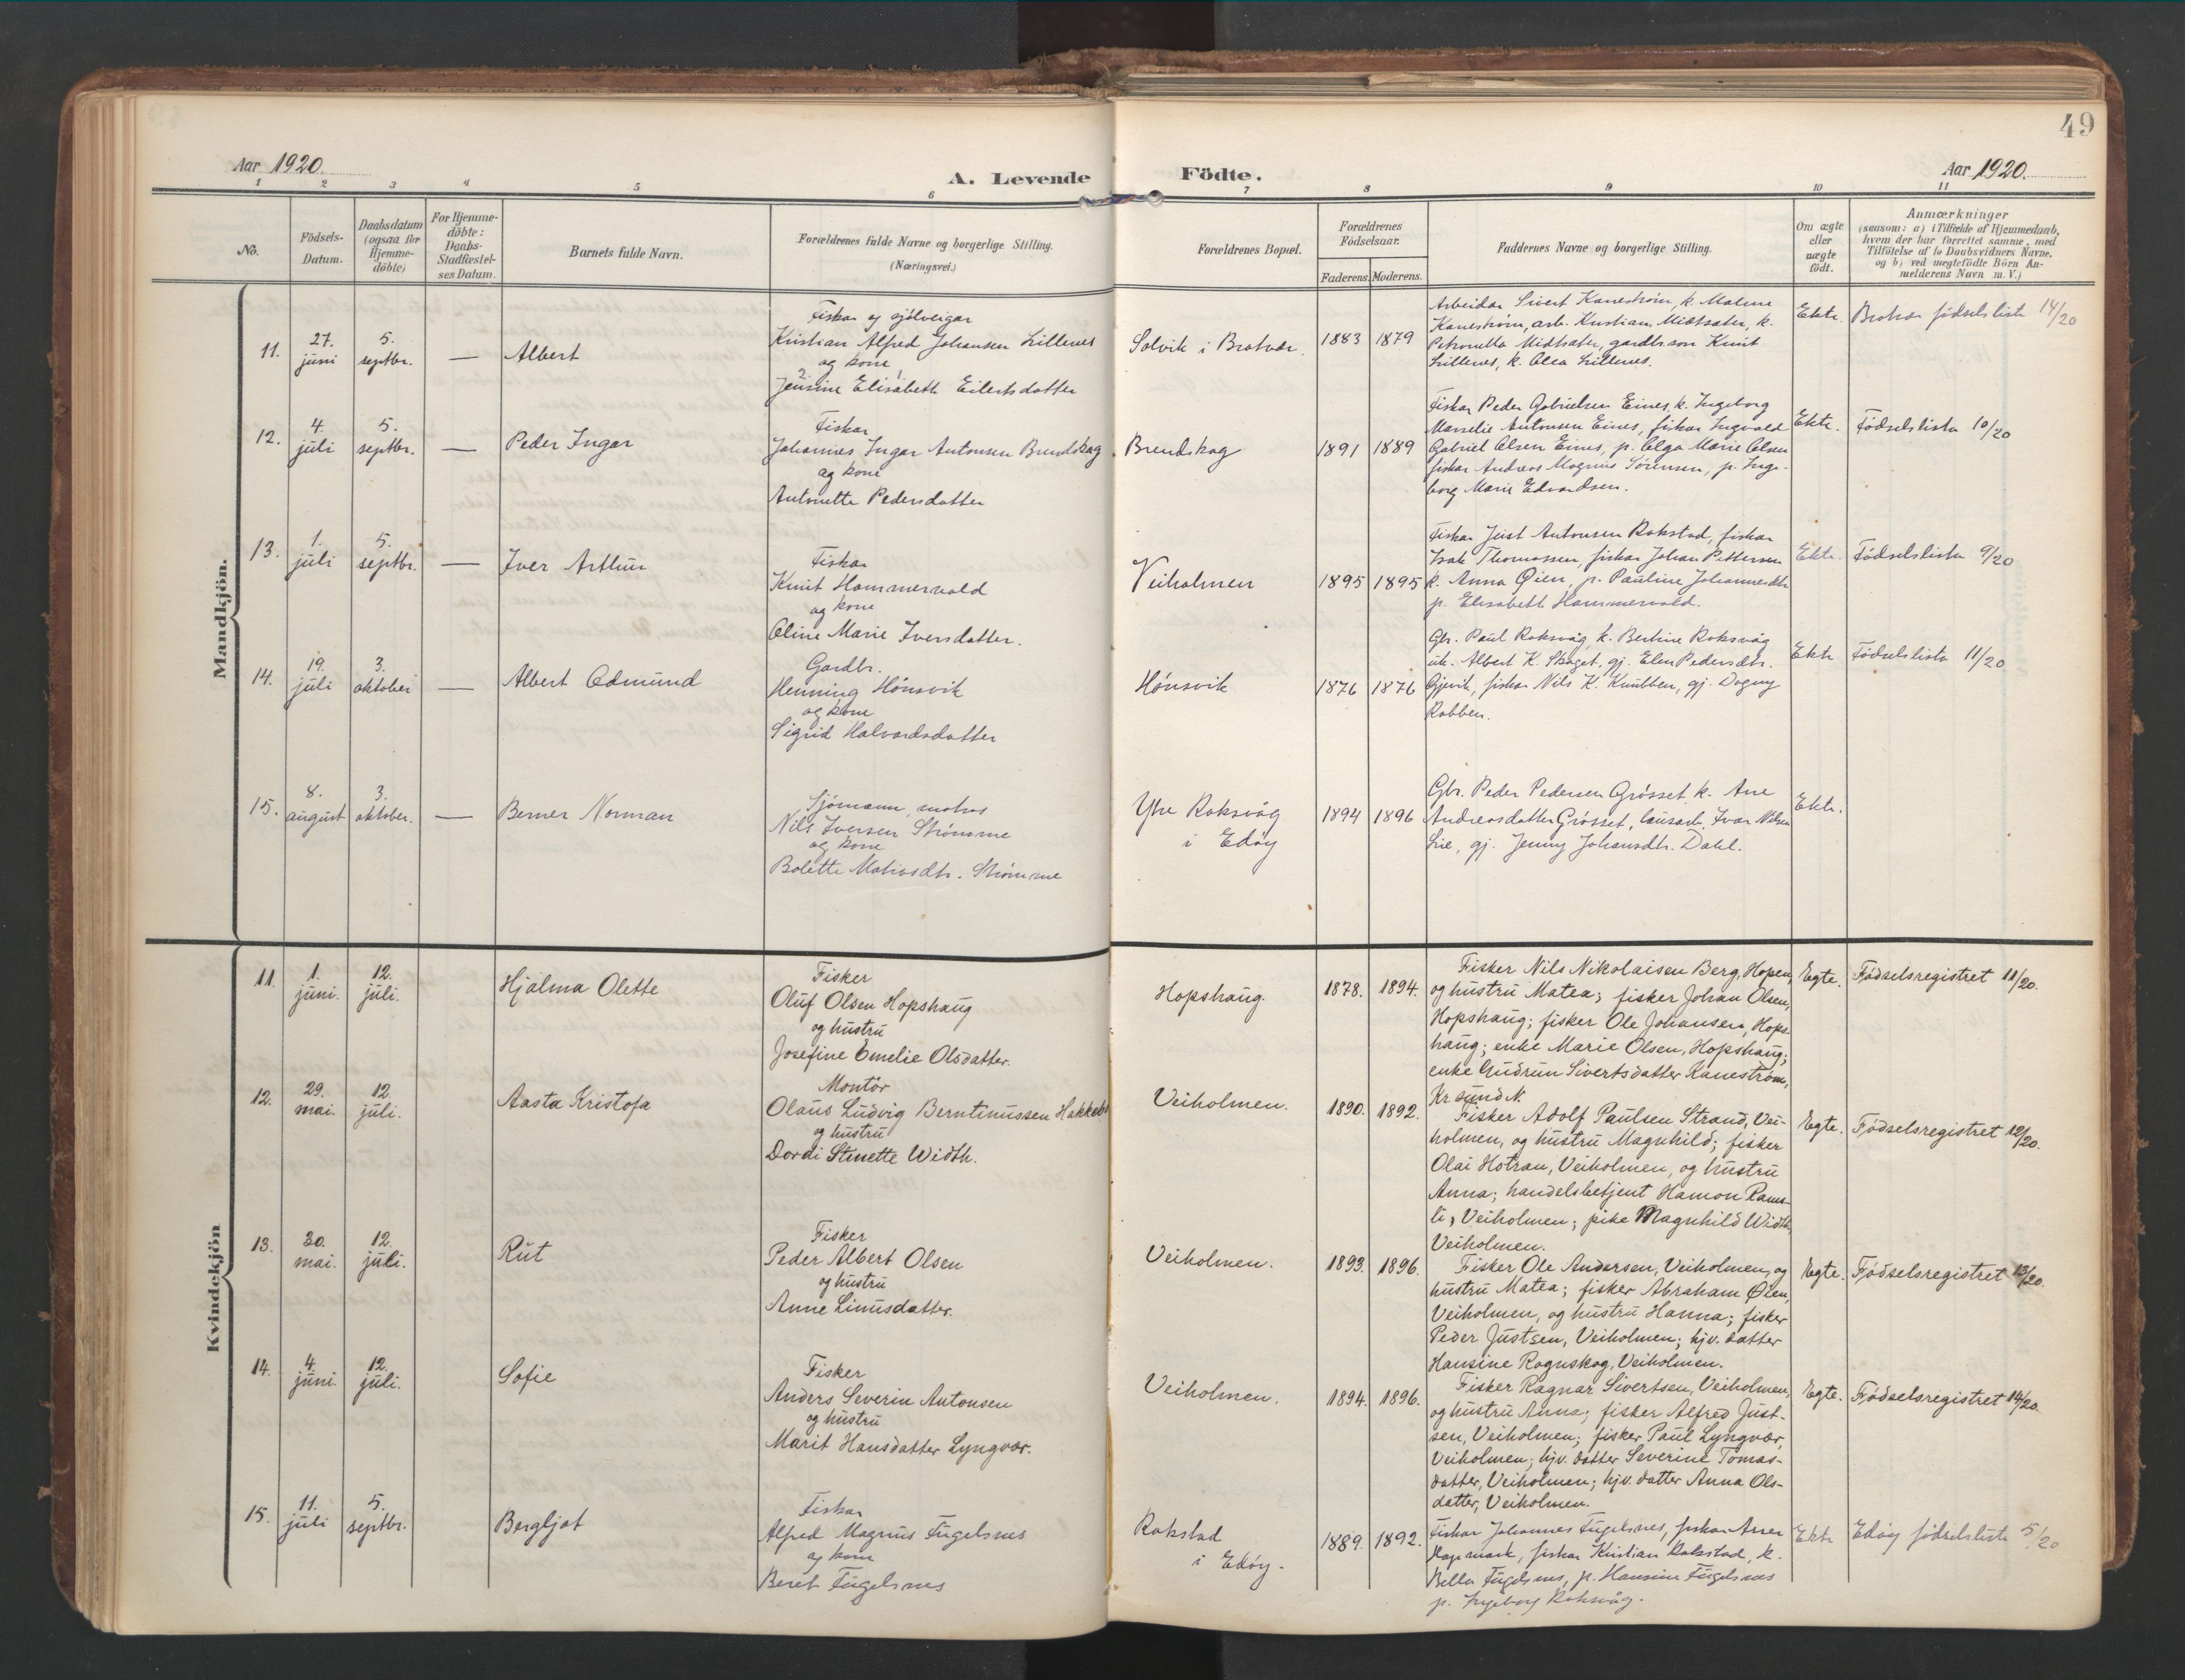 49
Aar 1920.
A. Levende Födte.
Aar 1920.
1 2 3 4 5 6 7 8 9 10 11
No.
Födsels-
Datum.
Daabsdatum
(ogsaa for
Hjemme-
döbte)
For Hjemme-
döbte:
Daabs-
Stadfæstel-
ses Datum.
Barnets fulde Navn.
Forældrenes fulde Navne og borgerlige Stilling.
(Næringsvei.)
Forældrenes Bopæl.
Forældrenes
Födselsaar.
Faderens. Moderens.
Faddernes Navne og borgerlige Stilling.
Om ægte
eller
uægte
födt.
Anmærkninger
(saasom: a) i Tilfælde af Hjemmedaab,
hvem der har forrettet samme, med
Tilföielse af to Daabsvidners Navne.
og b) ved uegtefödte Börn An-
melderens Navn m. V.)
Mandkjön.
11.
27.
juni
5.
septbr.
—
Albert
Fiskar og sjölveigar
Kristian Alfred Johansen Lillenes
og kone
2 1
Jensine Elisabeth Eilertsdatter
Solvik i Bratvær.
1883 1879
Arbeidar Sivert Kanestrøm, k. Malene
Kanestrøm, arb. Kristian Midtsæter, k.
Petronella Midtsæter, gardbr.son Knut
Lillenes, k. Olea Lillenes.
Ekte.
Bratvær fødselsliste 14/20
12.
4.
juli
5.
septbr.
—
Peder Ingar
Fiskar
Johannes Ingar Antonsen Brendskag
og kone
Antonette Pedersdatter
Brendskag
1891 1889
Fiskar Peder Gabrielsen Eines, k. Ingeborg
Marselie Antonsen Eines, fiskar Ingvald
Gabriel Olsen Eines, p. Olga Marie Olsen
fiskar Andreas Magnus Sørensen, p. Inge-
borg Marie Edvardsen.
Ekte.
Fødselslista 10/20
13.
1.
juli
5.
septbr.
—
Iver Arthur
Fiskar
Knut Hammervold
og kone
Oline Marie Iversdatter.
Veiholmen
1895 1895
Fiskar Just Antonsen Rokstad, fiskar
Isak Thomassen, fiskar Johan Pettersen
k. Anna Øien, p. Pauline Johannesdtr.
p. Elisabeth Hammervold.
Ekte.
Fødselslista 9/20
14.
19.
juli
3.
oktober
—
Albert Edmund
Gardbr.
Henning Hønsvik
og kone
Sigrid Halvardsdatter
Hønsvik
1876 1876
Gbr. Paul Roksvåg, k. Berhine Roksvåg
uk. Albert K. Skaget, gj. Elen Pedersdtr.
Gjøvik, fiskar Nils K. Knubben, gj. Dagny
Robben.
Ekte
Fødselslista 11/20
15.
8.
august
3.
oktober.
—
Berner Norman
Sjømann, matros
Nils Iversen Strömme
og kone
Bolette Matiasdtr. Strömme
Ytre Roksvåg
i Edöy
1894 1896
Gbr. Peder Pedersen Grösset k. Ane
Andreasdatter Grösset, lausarb. Ivar Nilsen
Lie, gj. Jenny Johansdtr. Dahl.
Ekte.
Kvindekjön
11.
1.
juni.
12.
juli.
Hjalma Olette
Fisker
Oluf Olsen Hopshaug
og hustru
Josefine Emelie Olsdatter.
Hopshaug.
1878. 1894.
Fisker Nils Nikolaisen Berg, Hopen,
og hustru Matea; fisker Johan Olsen,
Hopshaug; fisker Ole Johansen, Hops-
haug; enke Marie Olsen, Hopshaug;
enke Gudrun Sivertsdatter Kaneström,
Kr.sund N.
Egte.
Fødselsregistret 11/20.
12.
29.
mai.
12.
juli.
Aasta Kristofa
Montör
Olaus Ludvig Berntinussen
og hustru
Dordi Stinette Width.
Veiholmen.
1890. 1892.
Fisker Adolf Paulsen Strand, Vei-
holmen, og hustru Magnhild; fisker
Olai Hotran, Veiholmen, og hustru
Anna; handelsbetjent Hamon Rams-
li, Veiholmen; pike Magnhild Width,
Veiholmen.
Egte.
Fødselsregistret 12/20.
13.
30.
mai.
12.
juli.
Rut
Fisker
Peder Albert Olsen
og hustru
Anne Linusdatter.
Veiholmen.
1893. 1896.
Fisker Ole Andersen, Veiholmen, og
hustru Matea; fisker Abraham Øien,
Veiholmen, og hustru Hanna; fisker
Peder Justsen, Veiholmen; hjv. datter
Hansine Rognskog, Veiholmen.
Egte.
Fødselsregistret 13/20.
14.
4.
juni.
12.
juli.
Sofie
Fisker
Anders Severin Antonsen
og hustru
Marit Hansdatter Lyngvær.
Veiholmen.
1894. 1896.
Fisker Ragnar Sivertsen, Veiholmen,
og hustru Anna; fisker Alfred Just-
sen, Veiholmen; fisker Paul Lyngvær,
Veiholmen; hjv. datter Severine Tomas-
datter, Veiholmen; hjv. datter Anna Ols-
datter, Veiholmen.
Egte.
Fødselsregistret 14/20.
15.
11.
juli
5.
septbr.
Bergljot
Fiskar
Alfred Magnus Fugelsnes
og kone
Beret Fugelsnes
Rokstad
i Edöy.
1889. 1892.
Fiskar Johannes Fugelsnes, fiskar Arne
Hagemark, fiskar Kristian Rokstad, k.
Bella Fugelsnes, p. Hansine Fugelsnes
p. Ingeborg Roksvåg.
Ekte
Edöy fødselsliste 5/20